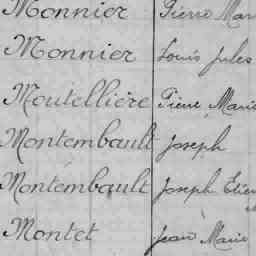 Monnier Pierre Mari
Monnier Louis Jules
Moutellière Pierre Marie
Montembault Joseph
Montembault Joseph Etien
Montet Jean Marie